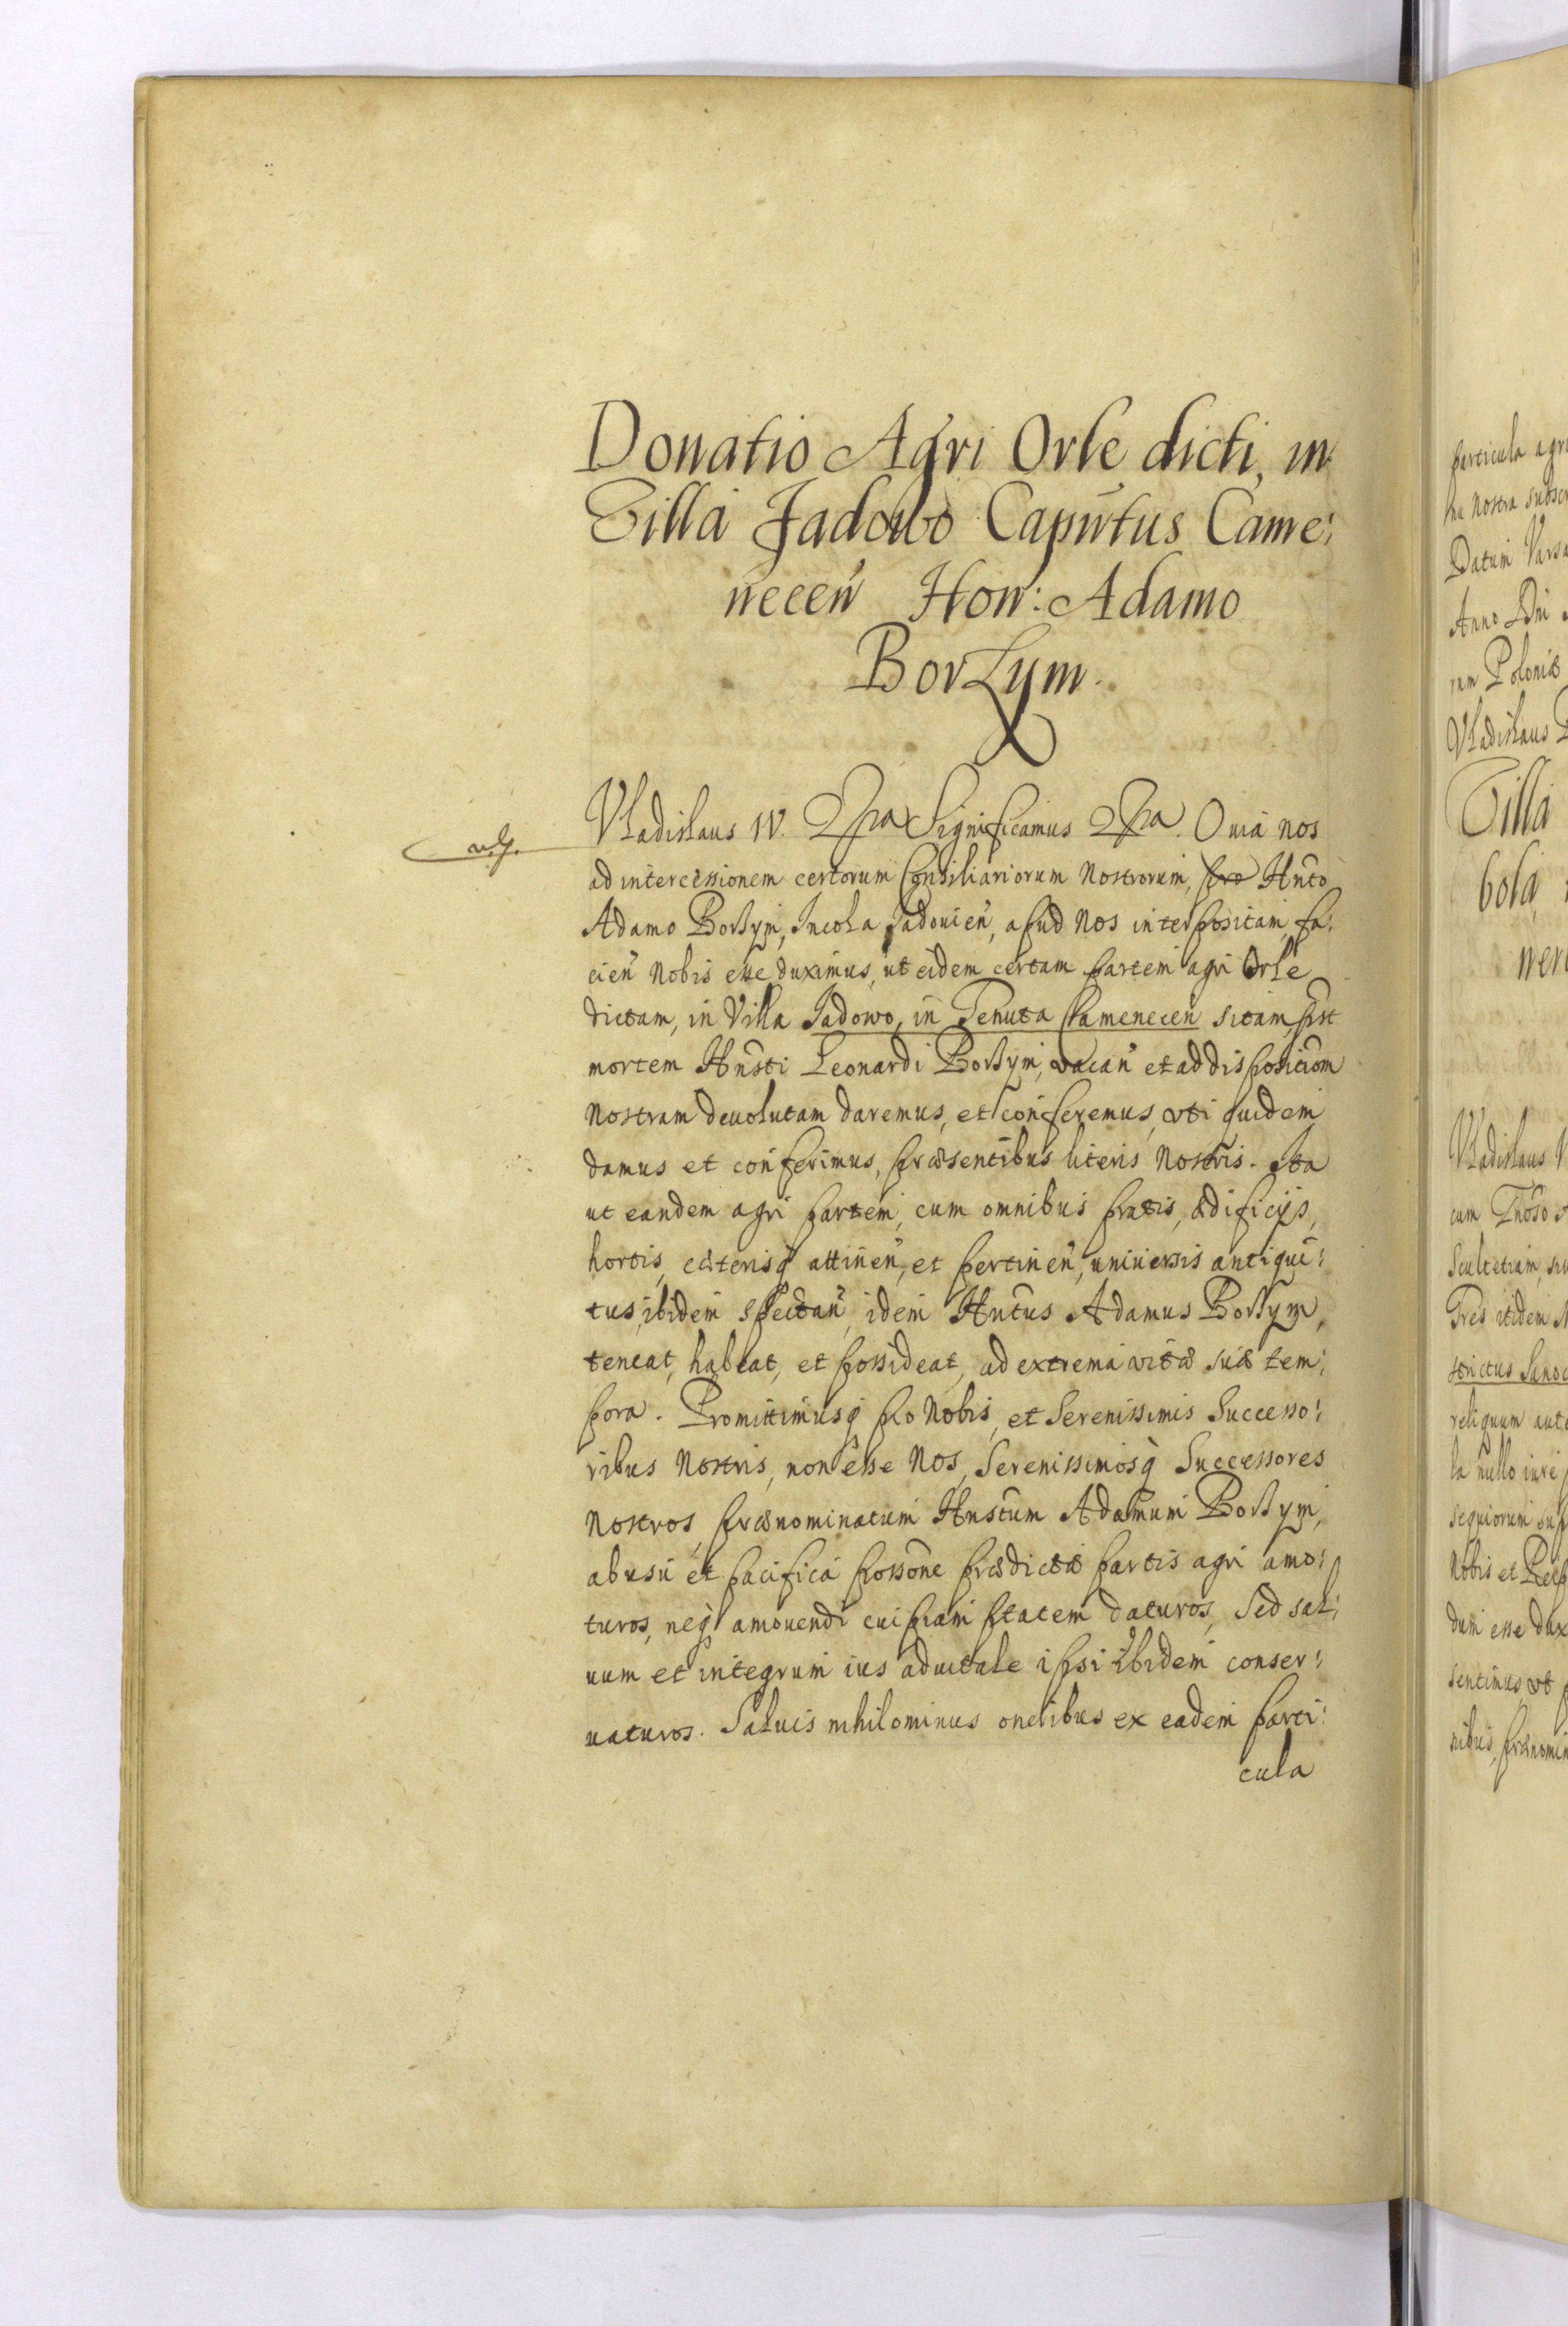 Donatio Agri Orle dicti, in
Villa Jadowo Caputus Came:
necen̄ Hon: Adamo
Borzym.
Vladislaus IV. Significamus Quia nos
ad intercessionem certorum Consiliariorum Nostrorum, Hn̄to
Adamo Borzym, Incola Jadouien̄, apud Nos interpositam, fa:
cien̄ Nobis esse duximus, ut eidem certam partem agri Orle
dictam, in Villa Jadowo, in Tenuta Camenecen̄ sitam, post
mortem Hn̄sti Leonardi Borzym, vacan̄ et ad dispositiom̄
Nostram deuolutam daremus, et conferemus, vti quidem
damus et conferimus, præsentibus literis Nostris. Ita
ut eandem agri partem, cum omnibus pratis, ædificijs,
hortis, cæterisq̨ attinen̄, et pertinen̄, uniuersis antiqui:
tus, ibidem spectan̄, idem Hn̄tus Adamus Borzym,
teneat, habeat, et possideat, ad extrema vitæ suæ tem:
pora. Promittimusq̨ pro Nobis, et Serenissimis Successo:
ribus Nostris, non esse Nos, Serenissimosq̨ Successores
Nostros, prænominatum Hn̄stum Adamum Borzym,
ab usu et pacifica possōne prædictæ partis agri amo:
turos, neq̨ amouendi cuipiam ptatem daturos, Sed sal:
uum et integrum ius aduitale ipsi ibidem conser:
uaturos. Saluis nihilominus oneribus ex eadem parti:
cula
particula agri
nu nostra subscr
Datum Varsa
Anno Dn̄i
rum Poloniæ
Vladislaus
Villa
bola
Vladislaus
cum
Scultetiam, siu
Tres itidem
strictus Sanoc
reliquum aute
la nullo iure
sequiorum sup
Nobis et Reip
dum esse dux
sentimus, vt
nibus, prænomin